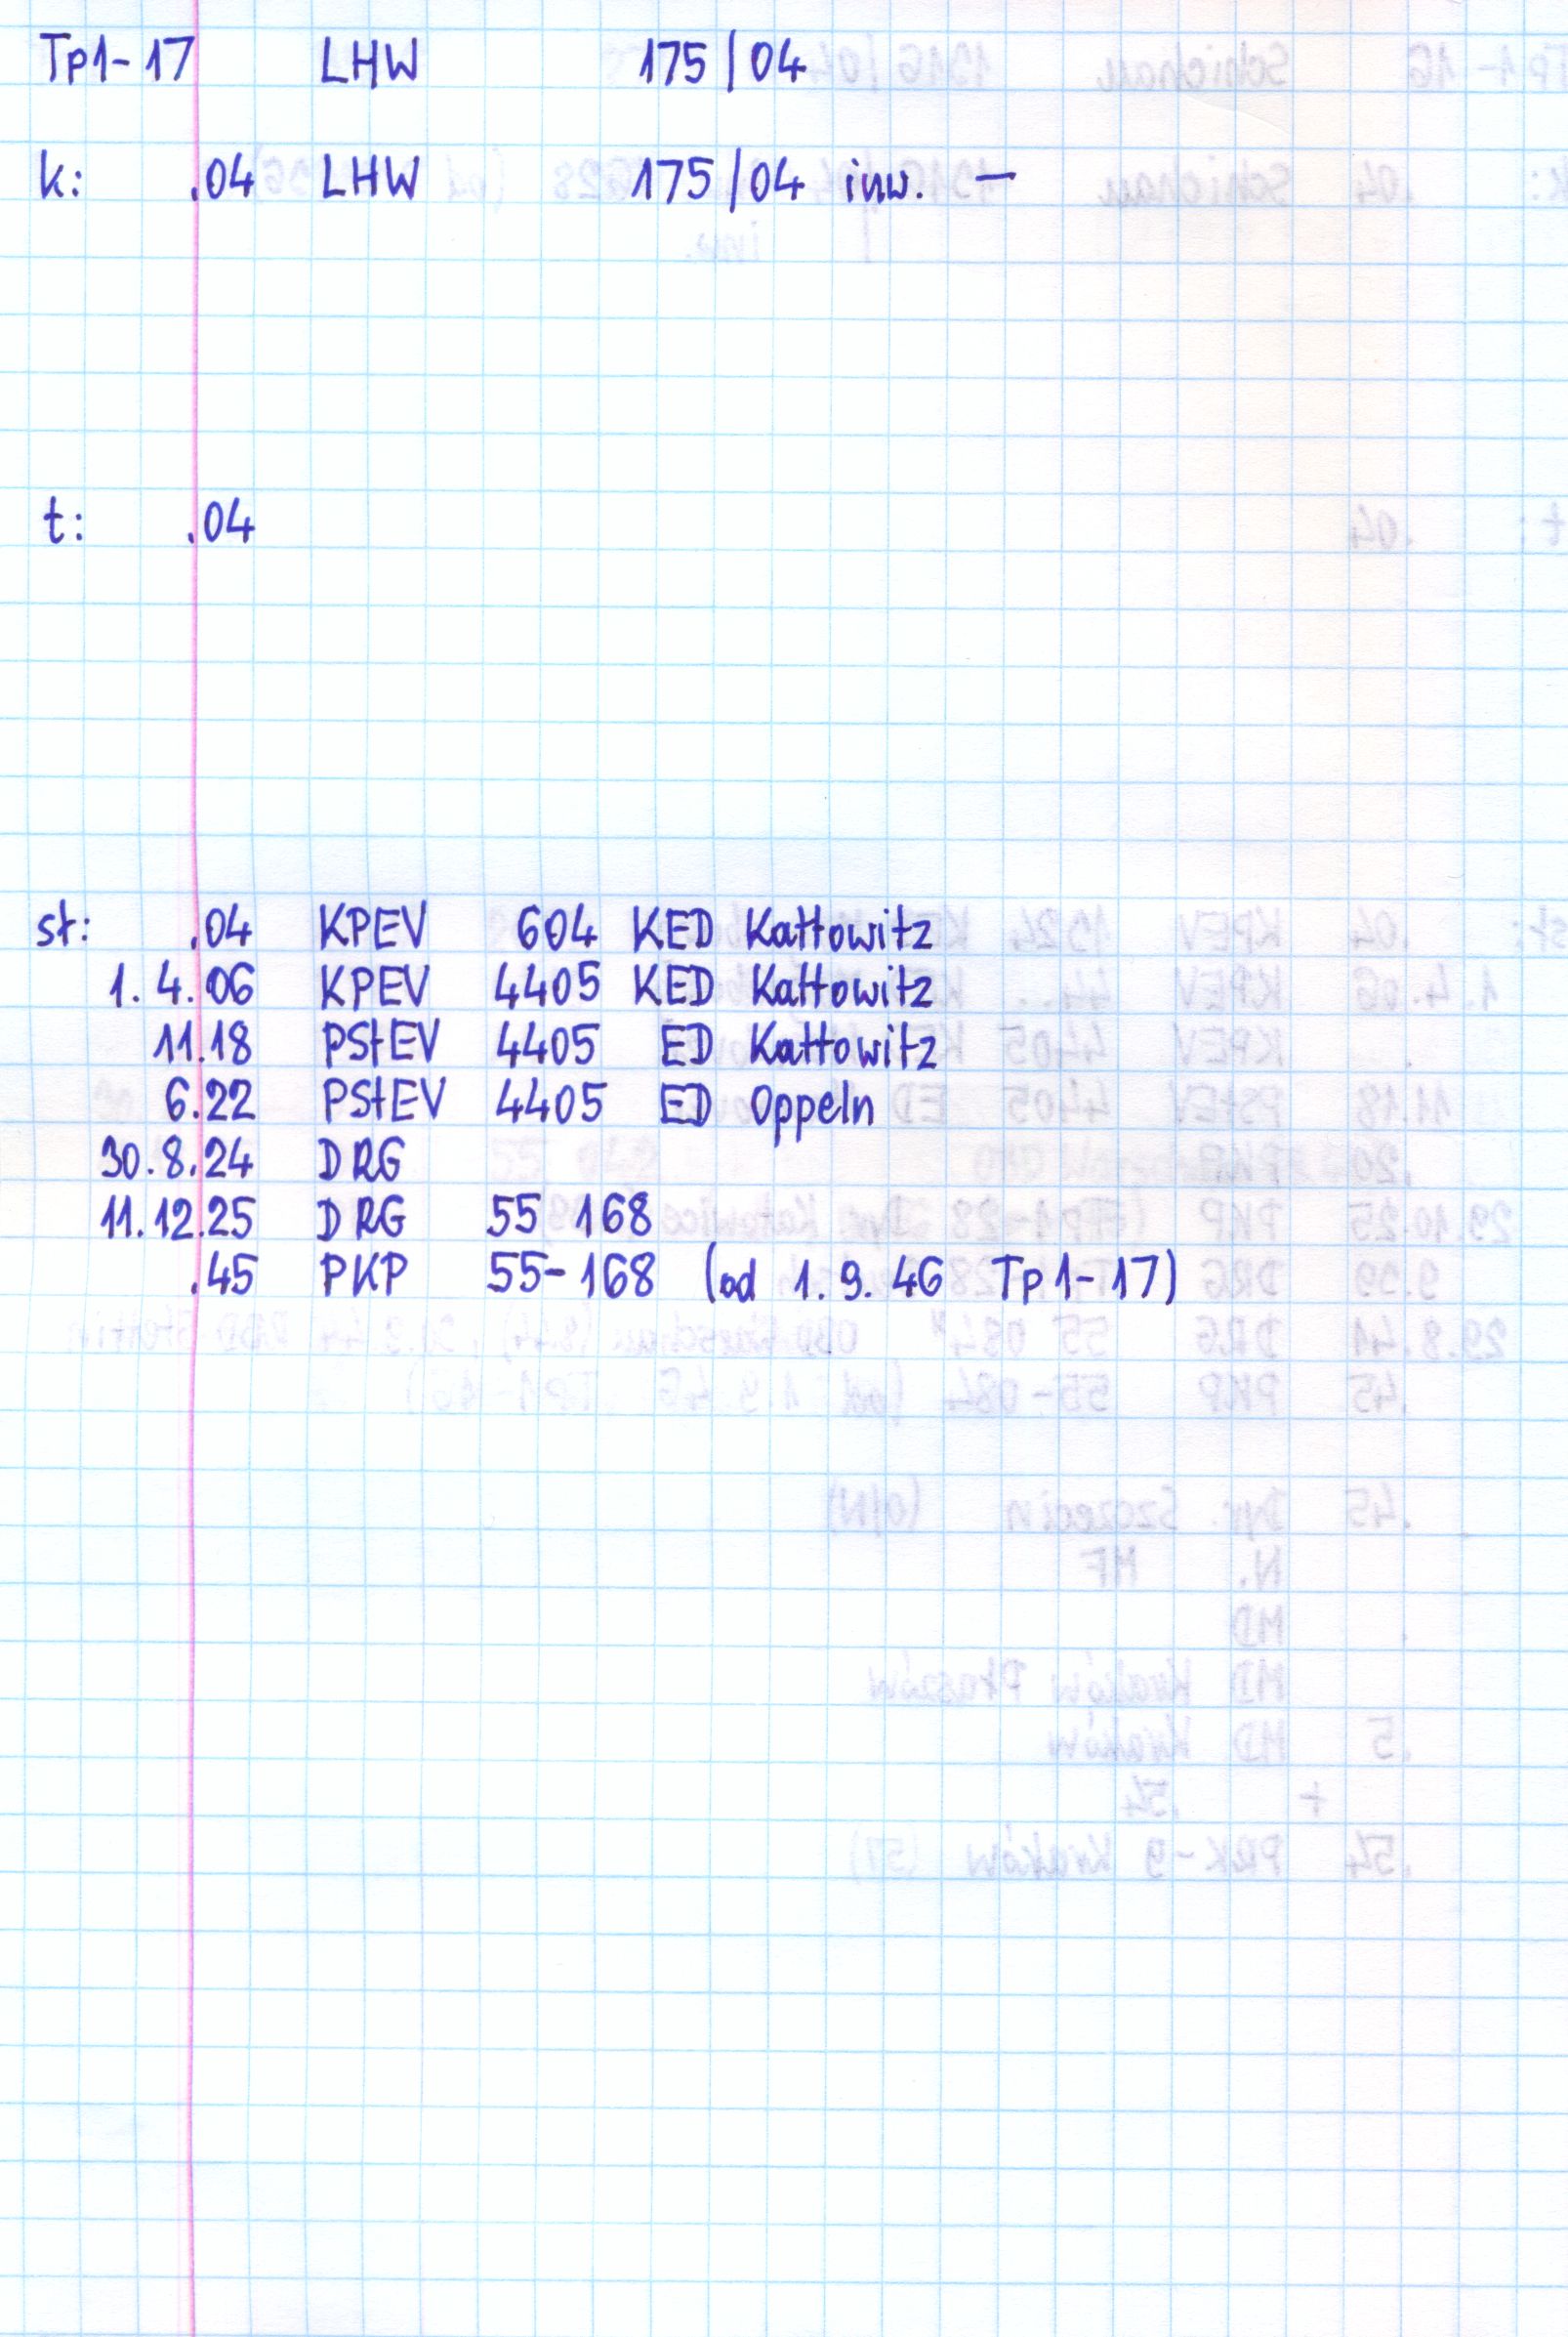 Tp1-17 LHW 175/04
k: .04 LHW 175/04 inw. —
t: .04
st: .04 KPEV 604 KED Kattowitz
1.4.06 KPEV 4405 KED Kattowitz
11.18 PStEV 4405 ED Kattowitz
6.22 PStEV 4405 ED Oppeln
30.8.24 DRG
11.12.25 DRG 55 168
.45 PKP 55-168 (od 1.9.46 Tp1-17)